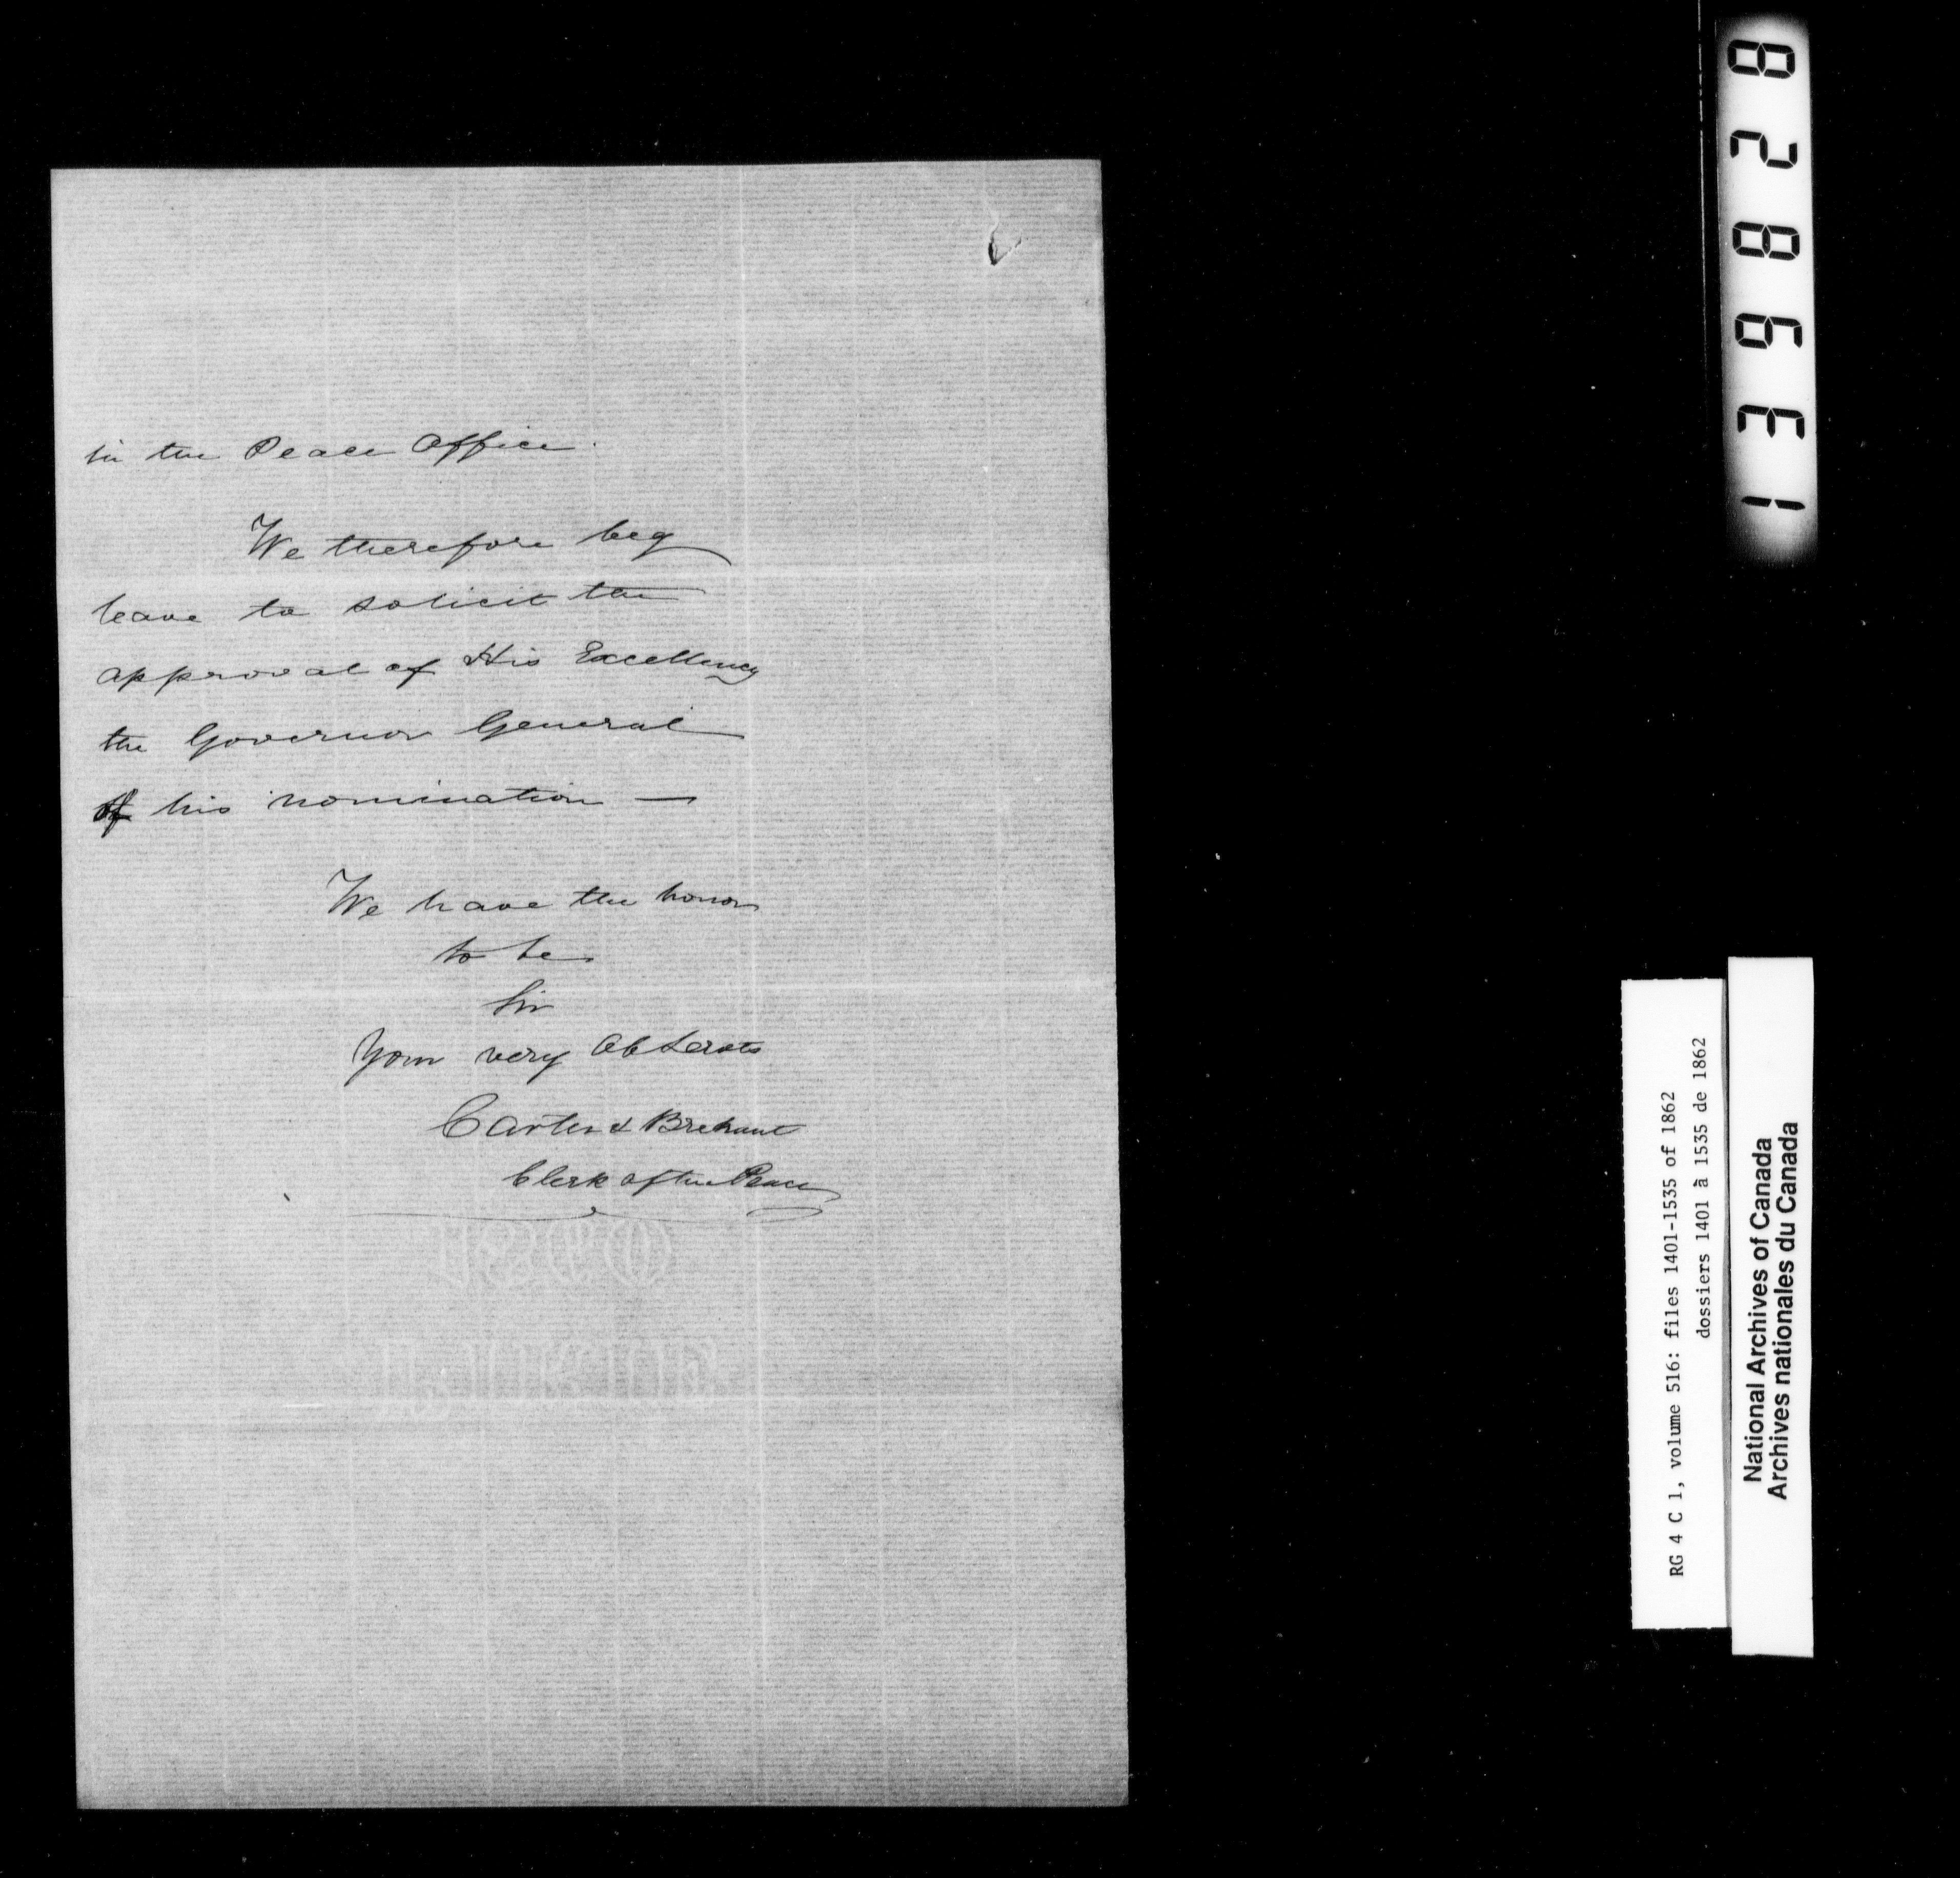 in the Peace Office.
We therefore beg
leave to solicit the
approval of His Excellency
the Governor General
of his nomination —
We have the honor
to be
Sir
Your very Ob Servts
Carter & Brehaut
Clerk of the Peace
RG 4 C 1, volume 516: files 1401-1535 of 1862
dossiers 1401 à 1535 de 1862
National Archives of Canada
Archives nationales du Canada
828631